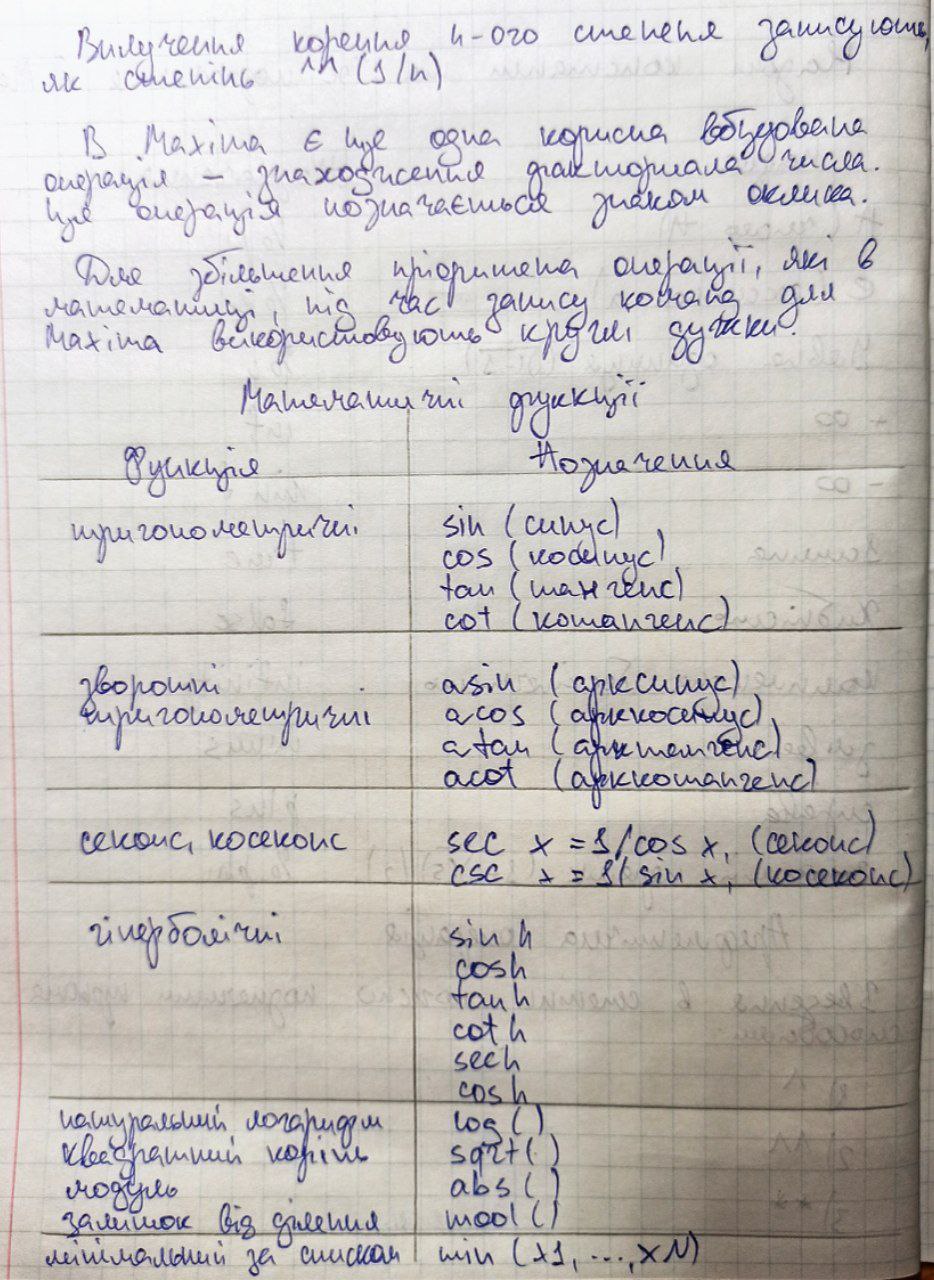 Вилучення кореня n-ого степеня записують,
як степінь ^^ (1/n)
В Maxima є ще одна корисна вбудована
операція – знаходження факторіала числа.
Ця операція позначається знаком оклика.
Для збільшення пріоритета операції, які в
математиці, під час запису команд для
Maxima використовують круглі дужки.
Математичні функції
Функція Позначення
тригонометричні sin (синус)
cos (косинус)
tan (тангенс)
cot (котангенс)
зворотні asin (арксинус)
тригонометричні acos (арккосинус)
atan (арктангенс)
acot (арккотангенс)
секонс, косеконс sec x = 1/cos x, (секонс)
csc x = 1/sin x, (косеконс)
гіперболічні sinh
cosh
tanh
coth
sech
cosh
натуральний логарифм log ()
квадратний корінь sqrt()
модуль abs ()
залишок від ділення mod ()
мінімальний за списком min (x1, ..., xN)